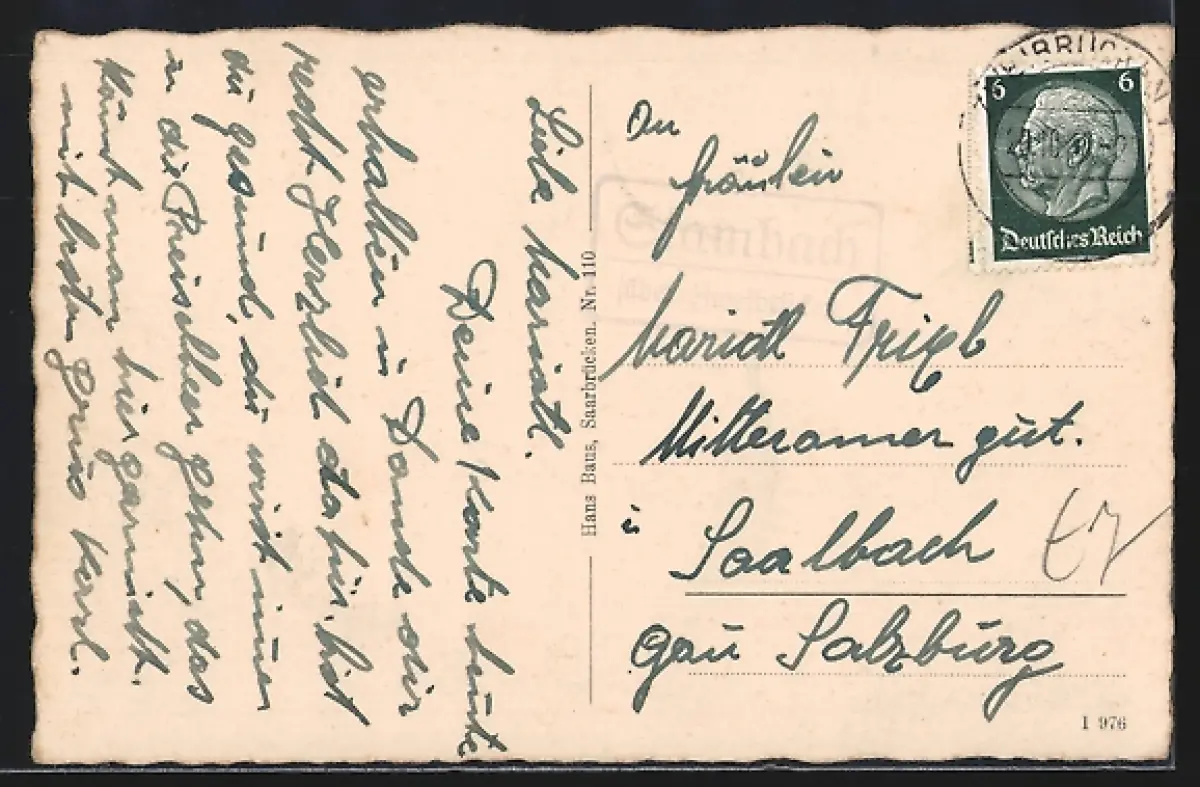 Liebe Mariatl.
Deine Karte heute
erhalten u Danke dir
recht Herzlich dafür, bist
du gesund, du wirst immer
zu die gehn, das
könnt man hier garnicht.
mit besten Gruss Karl.
Hans Baus, Saarbrücken. Nr. 110
An
fräulein
Mariatl
Mitteramer gut.
i
Saalbach
Gau Salzburg
6 6
Deutsches Reich
Stambach
I 976